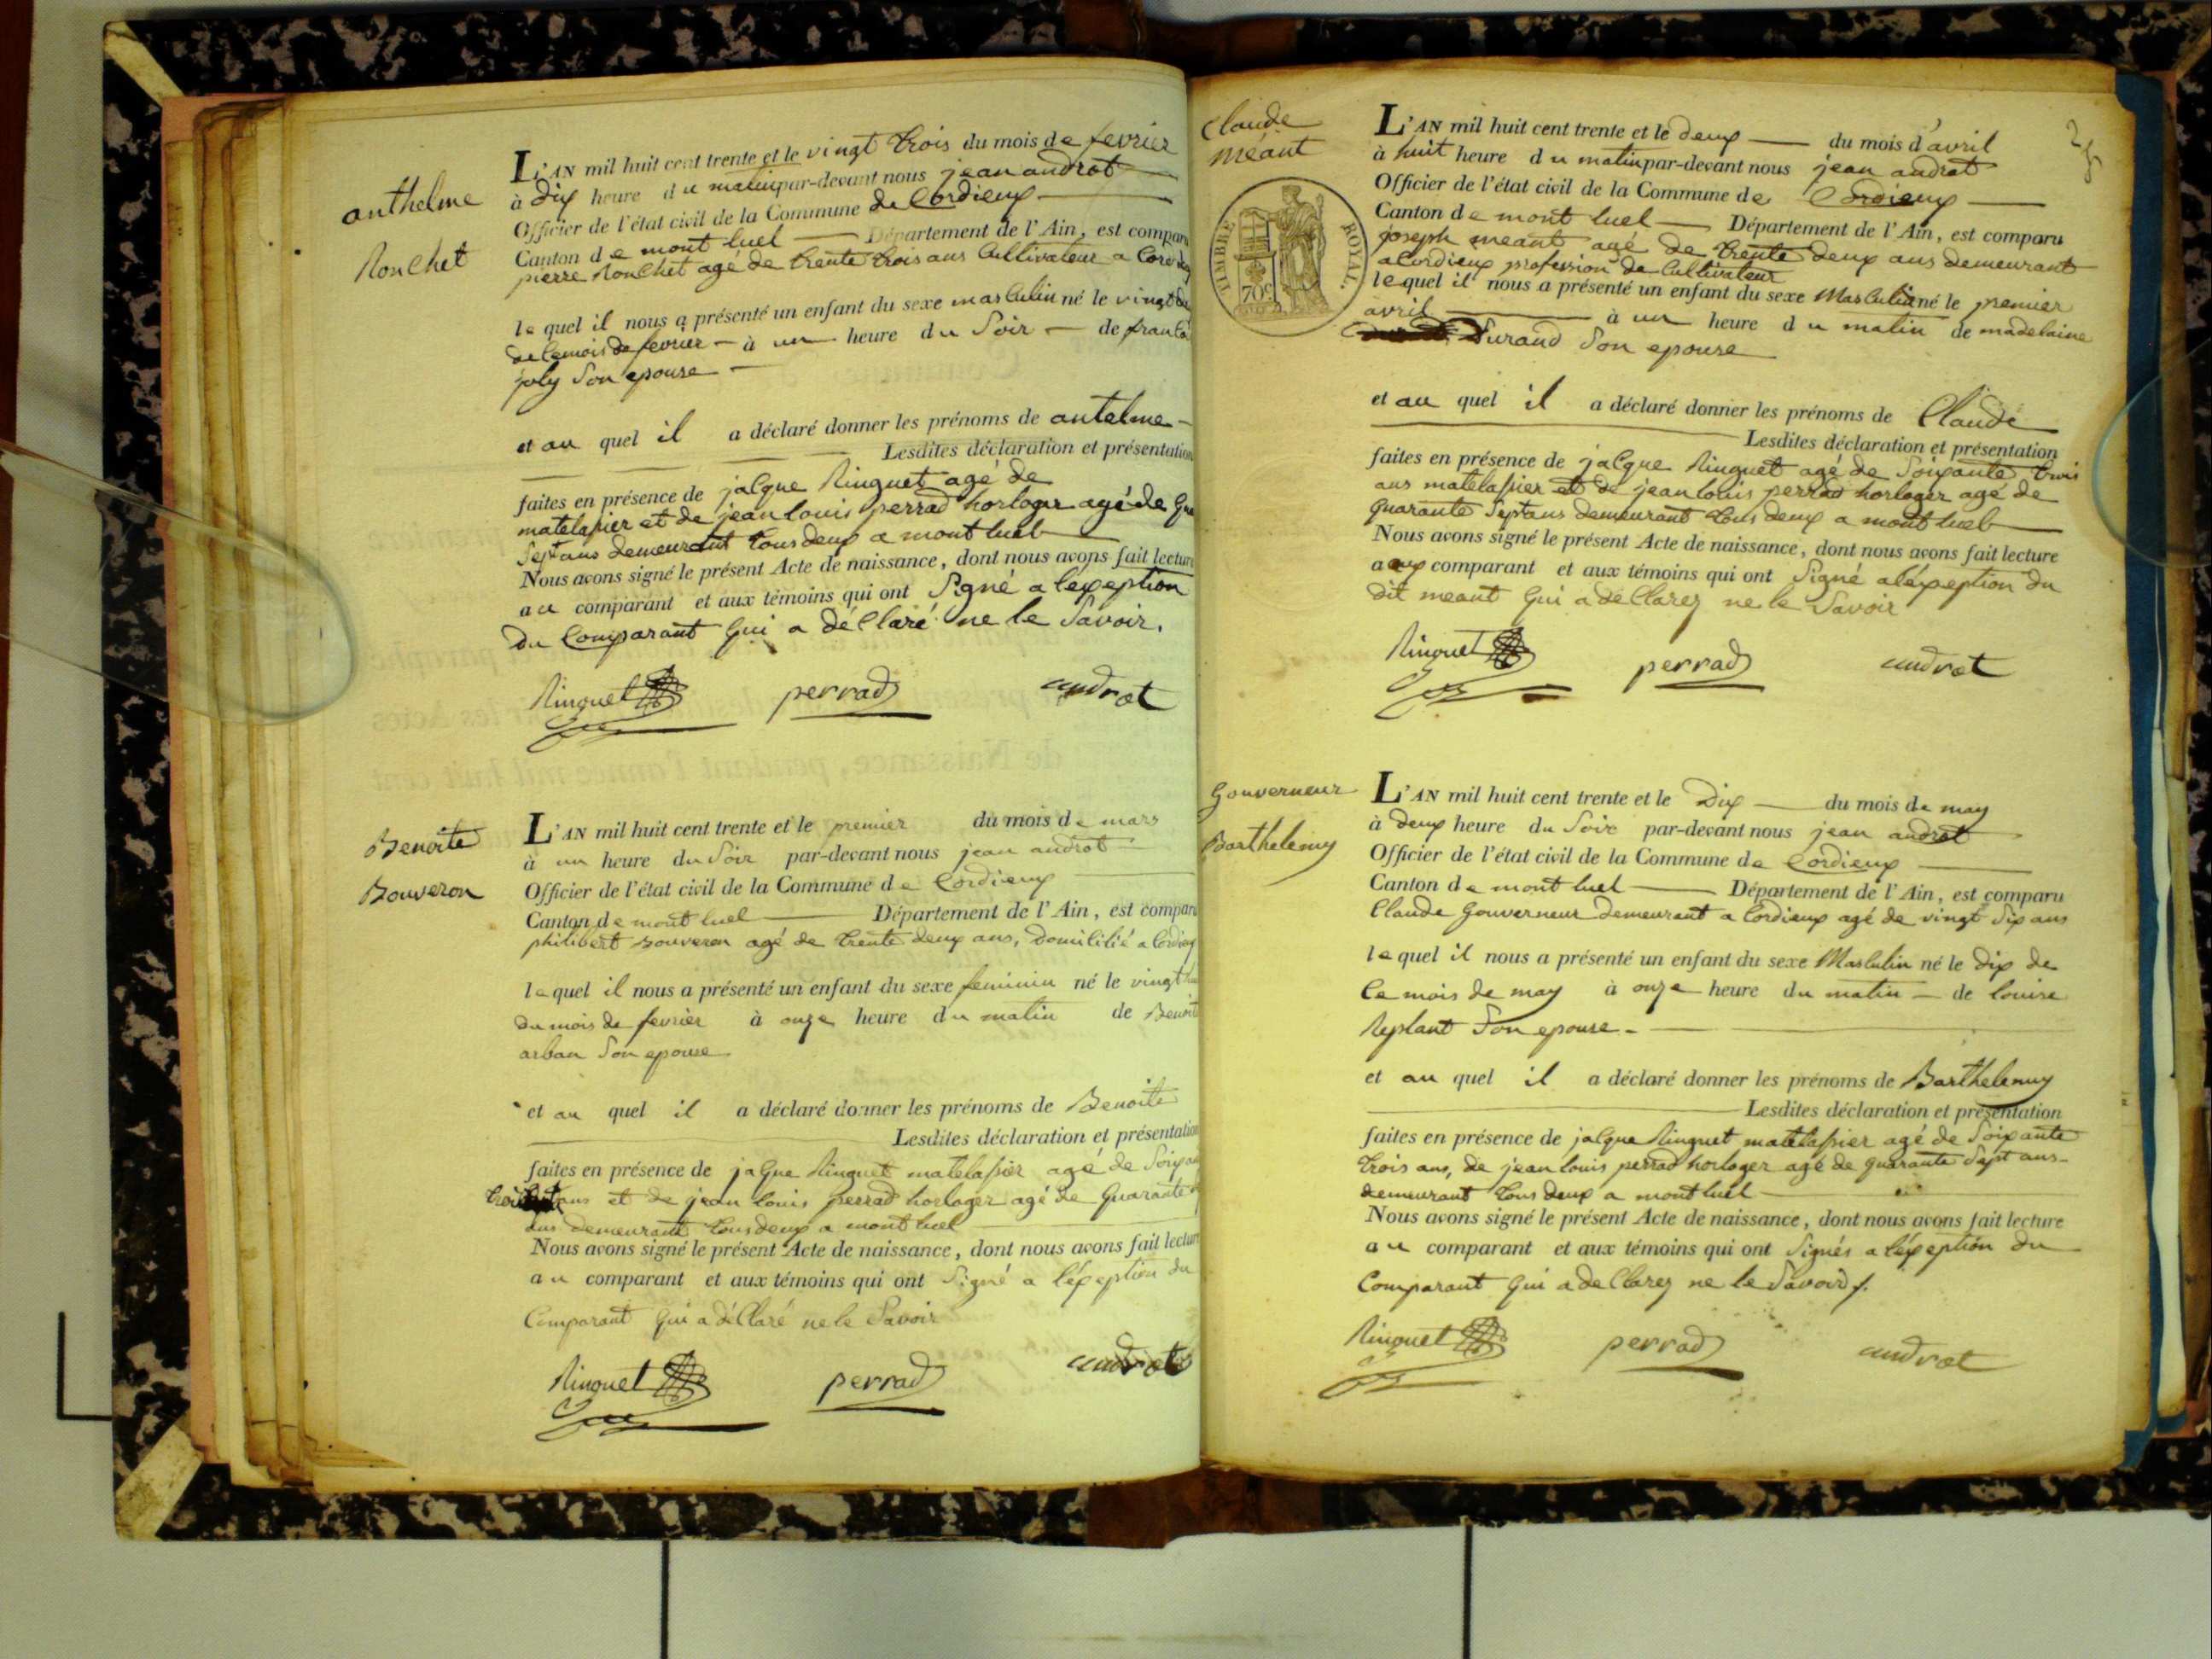 anthelme
Ronchet
L'AN mil huit cent trente et le vingt trois du mois de fevrier
à dix heure du matin par-devant nous jean androt
Officier de l'état civil de la Commune de Cordieux
Canton de mont luel Département de l'Ain, est comparu
pierre Ronchet agé de trente trois ans Cultivateur a
le quel il nous a présenté un enfant du sexe masculin né le vingt
de ce mois de fevrier à un heure du Soir de
joly Son epouse
et au quel il a déclaré donner les prénoms de antelme
Lesdites déclaration et présentation
faites en présence de jacque Ringuet agé de
matelassier et de jean louis perrad horloger agé de
Sept ans demeurant tous deux a mont luel
Nous avons signé le présent Acte de naissance, dont nous avons fait lecture
au comparant et aux témoins qui ont Signé a l'exeption
du Comparant Qui a déClaré ne le Savoir.
Ringuet perrad androt
Benoite
Bouveron
L'AN mil huit cent trente et le premier du mois de mars
à un heure du Soir par-devant nous jean androt
Officier de l'état civil de la Commune de Cordieux
Canton de mont luel Département de l'Ain, est comparu
philibert bouveron agé de trente deux ans, Domicilié a Cordieux
le quel il nous a présenté un enfant du sexe feminin né le vingt
du mois de fevrier à onze heure du matin de
arban Son epouse
et au quel il a déclaré donner les prénoms de Benoite
Lesdites déclaration et présentation
faites en présence de jacque Ringuet matelassier agé de
trois ans et de jean louis perrad horloger agé de Quarante
ans demeurant tous deux a mont luel
Nous avons signé le présent Acte de naissance, dont nous avons fait lecture
au comparant et aux témoins qui ont Signé a l'éxeption du
Comparant Qui a déClaré ne le Savoir
Ringuet perrad androt
Claude
meant
TIMBRE ROYAL.
70c
L'AN mil huit cent trente et le deux du mois d'avril
à huit heure du matin par-devant nous jean androt
Officier de l'état civil de la Commune de Cordieux
Canton de mont luel Département de l'Ain, est comparu
joseph meant agé de trente deux ans demeurant
a Cordieux profession de Cultivateur
le quel il nous a présenté un enfant du sexe Masculin né le premier
avril à un heure du matin de madelaine
Durand Son epouse
et au quel il a déclaré donner les prénoms de Claude
Lesdites déclaration et présentation
faites en présence de jacque Ringuet agé de Soixante trois
ans matelassier et de jean louis perrad horloger agé de
Quarante Sept ans demeurant tous deux a mont luel
Nous avons signé le présent Acte de naissance, dont nous avons fait lecture
aux comparant et aux témoins qui ont Signé a l'éxeption du
dit meant Qui a déClarez ne le Savoir
Ringuet perrad androt
Gouverneur
Barthelemy
L'AN mil huit cent trente et le Dix du mois de may
à deux heure du Soir par-devant nous jean androt
Officier de l'état civil de la Commune de Cordieux
Canton de mont luel Département de l'Ain, est comparu
Claude Gouverneur demeurant a Cordieux agé de vingt Six ans
le quel il nous a présenté un enfant du sexe Masculin né le dix de
Ce mois de may à onze heure du matin de louise
Replant Son epouse
et au quel il a déclaré donner les prénoms de Barthelemy
Lesdites déclaration et présentation
faites en présence de jacque Ringuet matelassier agé de Soixante
trois ans, de jean louis perrad horloger agé de quarante Sept ans
demeurant tous deux a mont luel
Nous avons signé le présent Acte de naissance, dont nous avons fait lecture
au comparant et aux témoins qui ont Signés a l'éxeption du
Comparant Qui a deClarez ne le Savoir
Ringuet perrad androt